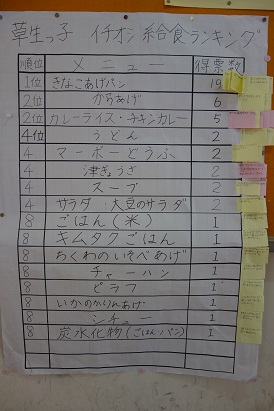 草生っ子 イチオシ給食ランキング
順位 メニュー 得票数
1位 きなこあげパン 19
2位 からあげ 6
2位 カレーライス・チキンカレー 5
4位 うどん 2
4 マーボーどうふ 2
4 津ぎょうざ 2
4 スープ 2
4 サラダ 大豆のサラダ 2
8 ごはん(米) 1
8 キムタクごはん 1
8 ちくわのいそべあげ 1
8 チャーハン 1
8 ピラフ 1
8 いかのかりんあげ 1
8 シチュー 1
8 炭水化物(ごはん・パン) 1